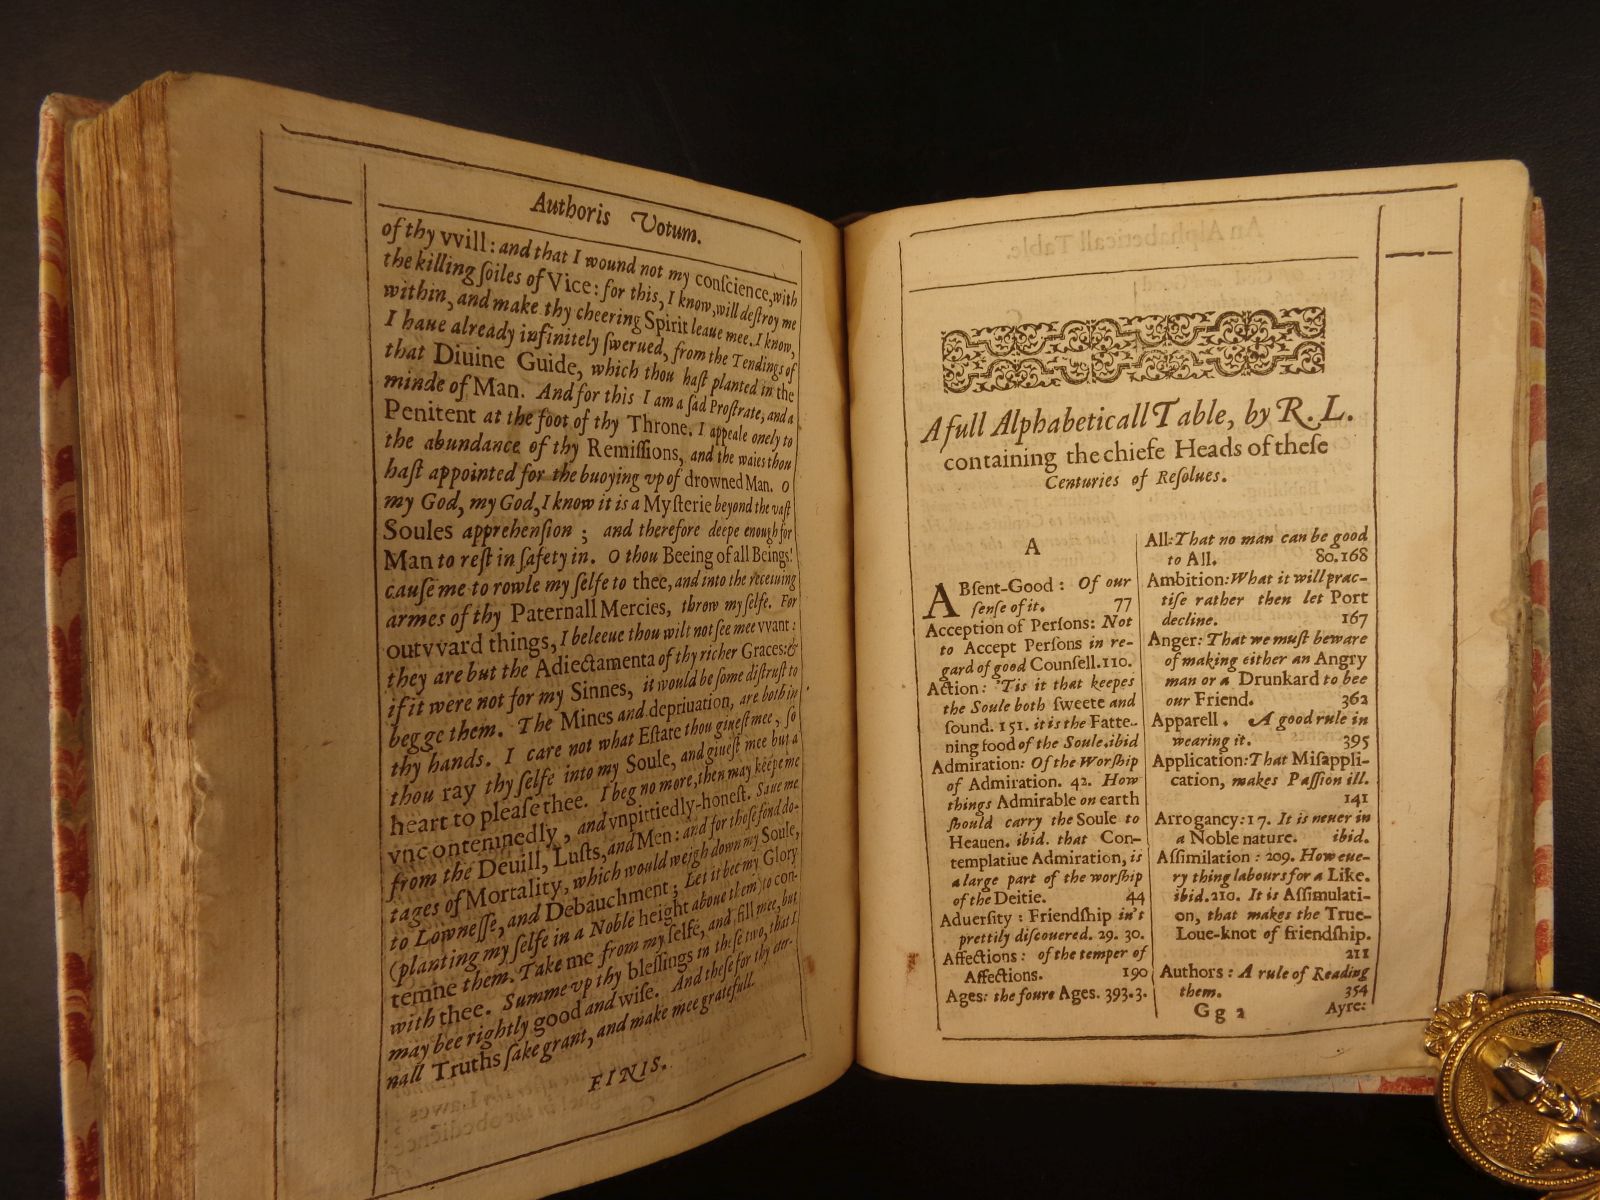 Authoris Votum.
of thy vvill: and that I wound not my conſcience, with
the killing ſoiles of Vice: for this, I know, will deſtroy me
within, and make thy cheering Spirit leaue mee. I know,
I haue already infinitely ſwerued, from the Tendings of
that Diuine Guide, which thou haſt planted in the
minde of Man. And for this I am a ſad Proſtrate, and a
Penitent at the foot of thy Throne. I appeale onely to
the abundance of thy Remiſſions, and the waies thou
haſt appointed for the buoying vp of drowned Man. O
my God, my God, I know it is a Myſterie beyond the vaſt
Soules apprehenſion; and therefore deepe enough for
Man to reſt in ſafety in. O thou Beeing of all Beings!
cauſe me to rowle my ſelfe to thee, and into the receiuing
armes of thy Paternall Mercies, throw my ſelfe. For
outvvard things, I beleeue thou wilt not ſee mee vvant:
they are but the Adiectamenta of thy richer Graces: &
if it were not for my Sinnes, it would be ſome diſtruſt to
begge them. The Mines and depriuation, are both in
thy hands. I care not what Eſtate thou giueſt mee, ſo
thou ray thy ſelfe into my Soule, and giueſt mee but a
heart to pleaſe thee. I beg no more, then may keepe me
vncontemnedly, and vnpittiedly-honeſt. Saue me
from the Deuill, Luſts, and Men: and for thoſe fond do-
tages of Mortality, which would weigh down my Soule,
to Lowneſſe, and Debauchment; Let it bee my Glory
(planting my ſelfe in a Noble height aboue them) to con-
temne them. Take me from my ſelfe, and fill mee, but
with thee. Summe vp thy bleſſings in theſe two, that I
may bee rightly good and wiſe. And theſe for thy eter-
nall Truths ſake grant, and make mee gratefull.
FINIS.
A full Alphabeticall Table, by R. L.
containing the chiefe Heads of theſe
Centuries of Reſolues.
A
ABſent-Good: Of our
ſenſe of it. 77
Acception of Perſons: Not
to Accept Perſons in re-
gard of good Counſell. 110.
Action: 'Tis it that keepes
the Soule both ſweete and
ſound. 151. it is the Fatte-
ning food of the Soule. ibid
Admiration: Of the Worſhip
of Admiration. 42. How
things Admirable on earth
ſhould carry the Soule to
Heauen. ibid. that Con-
templatiue Admiration, is
a large part of the worſhip
of the Deitie. 44
Aduerſity: Friendſhip in't
prettily diſcouered. 29. 30.
Affections: of the temper of
Affections. 190
Ages: the foure Ages. 393.3.
All: That no man can be good
to All. 80.168
Ambition: What it will prac-
tiſe rather then let Port
decline. 167
Anger: That we muſt beware
of making either an Angry
man or a Drunkard to bee
our Friend. 362
Apparell. A good rule in
wearing it. 395
Application: That Miſappli-
cation, makes Paſſion ill.
141
Arrogancy: 17. It is neuer in
a Noble nature. ibid.
Aſſimilation: 209. How eue-
ry thing labours for a Like.
ibid. 210. It is Aſſimulati-
on, that makes the True-
Loue-knot of friendſhip.
211
Authors: A rule of Reading
them. 354
Gg 2 Ayre: